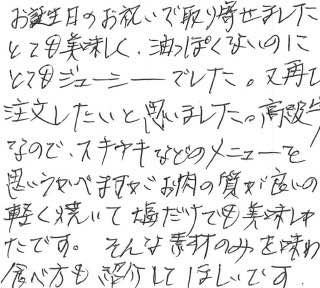 お誕生日のお祝いで取り寄せました
とても美味しく、油っぽくないのに
とてもジューシーでした。又再び
注文したいと思いました。高級牛
なので、スキヤキなどのメニューを
思いうかべますがお肉の質が良いの
軽く焼いて塩だけでも美味しか
たです。そんな素材のみを味わ
食べ方も紹介してほしいです。